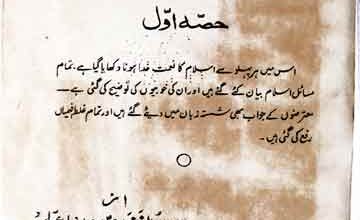 حصہ اوّل
اس میں ہر پہلو سے اسلام کا نعمت خدا ہونا دکھایا گیا ہے، تمام
مسائل اسلام بیان کئے گئے ہیں اور ان کی خوبیوں کی توضیح کی گئی ہے۔
معترضوں کے جواب بھی شستہ زبان میں دیئے گئے ہیں اور تمام غلط فہمیاں
رفع کی گئی ہیں۔
از